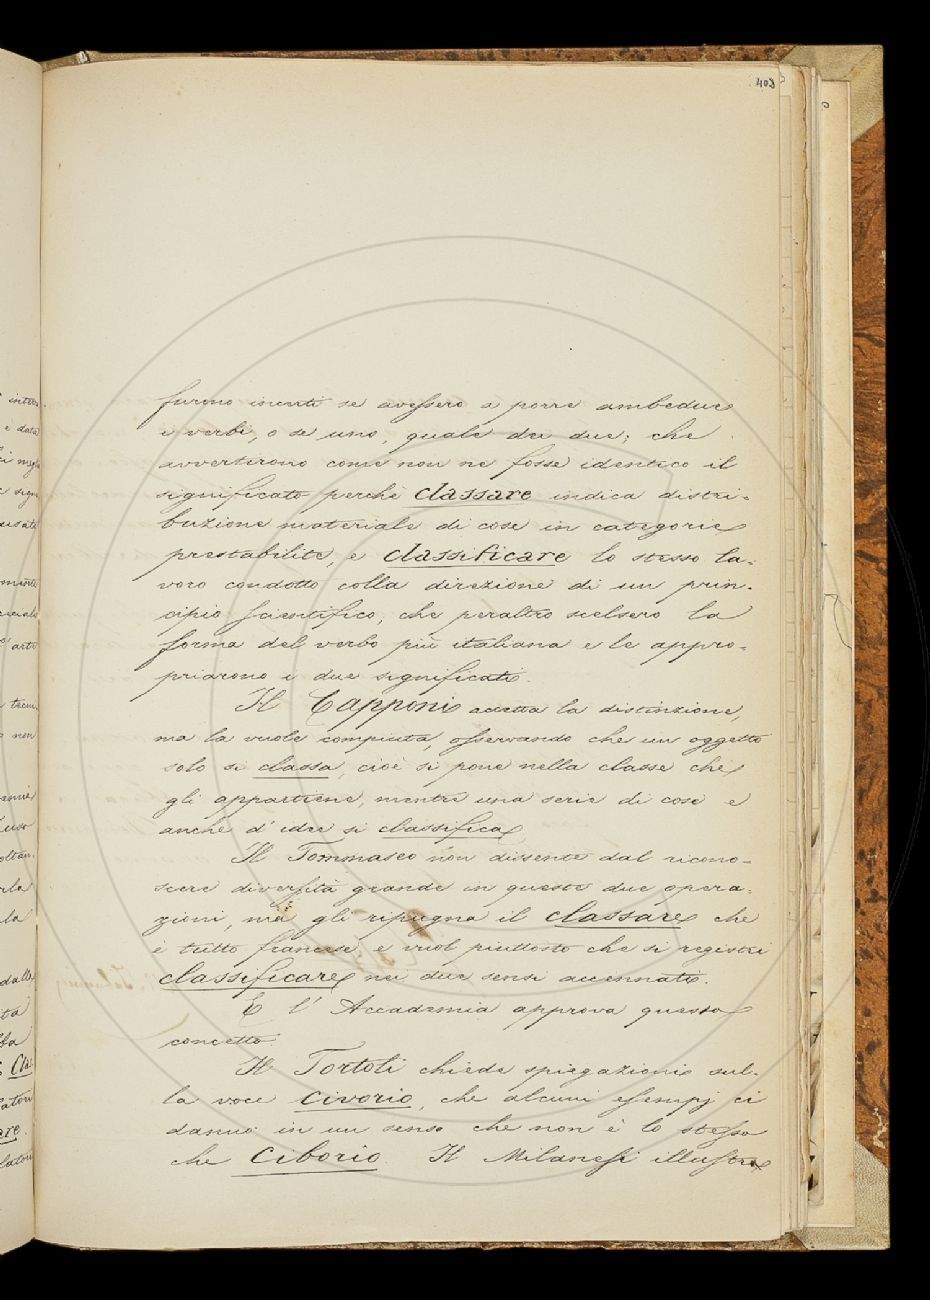 403
furono incerti se avessero a porre ambedue
i verbi, o se uno, quale dei due; che
avvertirono come non ne fosse identico il
significato perchè classare indica distri-
buzione materiale di cose in categorie
prestabilite, e classificare lo stesso la-
voro condotto colla direzione di un prin-
cipio scientifico, che peraltro scelsero la
forma del verbo più italiana e le appro-
priarono i due significati.
Il Capponi accetta la distinzione,
ma la vuole compiuta, osservando che un oggetto
solo si classa, cioè si pone nella classe che
gli appartiene, mentre una serie di cose e
anche d'idee si classifica.
Il Tommaseo non dissente dal ricono-
scere diversità grande in queste due opera-
zioni, ma gli ripugna il classare che
è tutto francese, e vuol piuttosto che si registri
classificare nei due sensi accennati.
E l'Accademia approva questo
concetto.
Il Tortoli chiede spiegazioni sul-
la voce civorio, che alcuni esempj ci
danno in un senso che non è lo stesso
che ciborio. Il Milanesi illustra